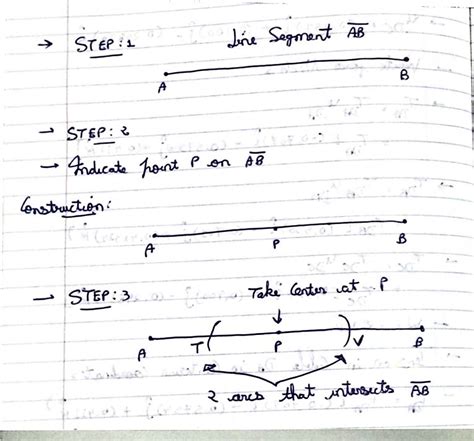 → STEP:1 Line Segment A̅B̅
A B
→ STEP: 2
→ Indicate point P on A̅B̅
Construction:
A P B
→ STEP: 3 Take Center at P
A T P V B
2 arcs that intersects A̅B̅